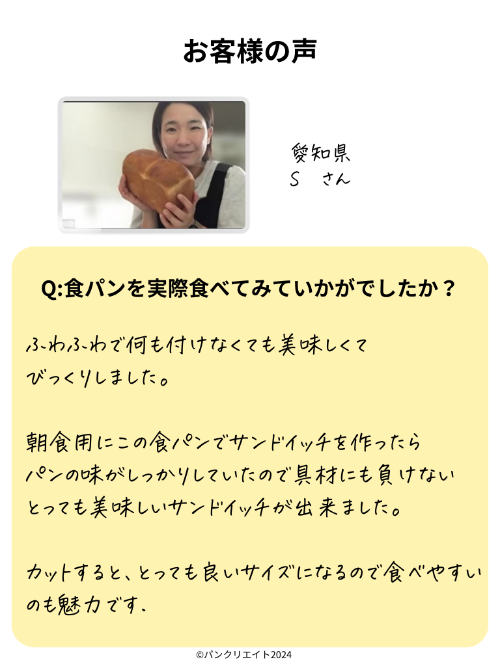 お客様の声
愛知県
S さん
Q:食パンを実際食べてみていかがでしたか？
ふわふわで何も付けなくても美味しくて
びっくりしました。
朝食用にこの食パンでサンドイッチを作ったら
パンの味がしっかりしていたので具材にも負けない
とっても美味しいサンドイッチが出来ました。
カットすると、とっても良いサイズになるので食べやすい
のも魅力です.
©パンクリエイト2024